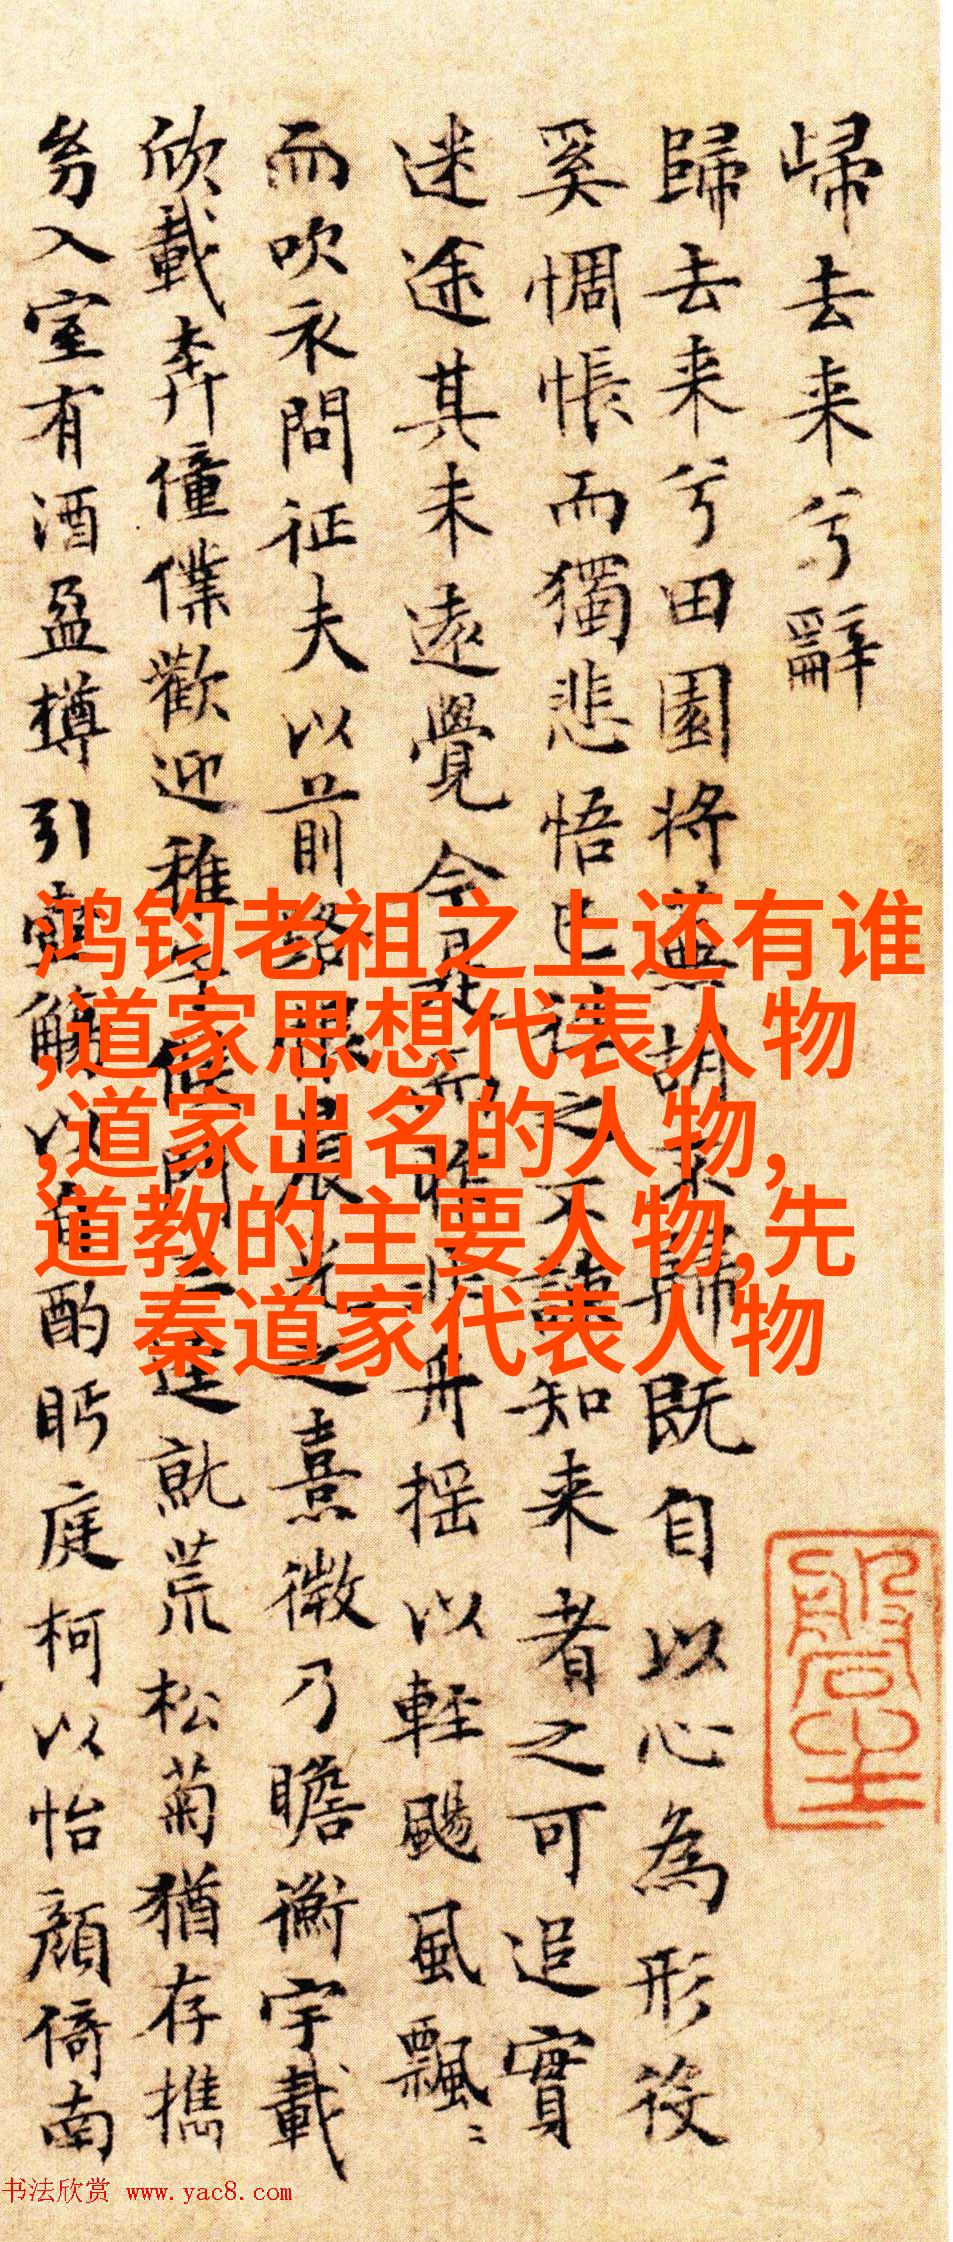 歸去来兮辭
歸去来兮田園将蕪胡不歸既自以心為形役
奚惆悵而獨悲悟已往之不諫知来者之可追實
迷途其未遠覺今是而昨非舟揺以輕颺風飄〻
而吹衣問征夫以前路恨晨光之熹微乃瞻衡宇載
欣載奔僮僕歡迎稚子候門三逕就荒松菊猶存攜
幼入室有酒盈樽引壺觴以自酌眄庭柯以怡顔倚南
鸿钧老祖之上还有谁
,道家思想代表人物
,道家出名的人物,
道教的主要人物,先
秦道家代表人物
书法欣赏 www.yac8.com